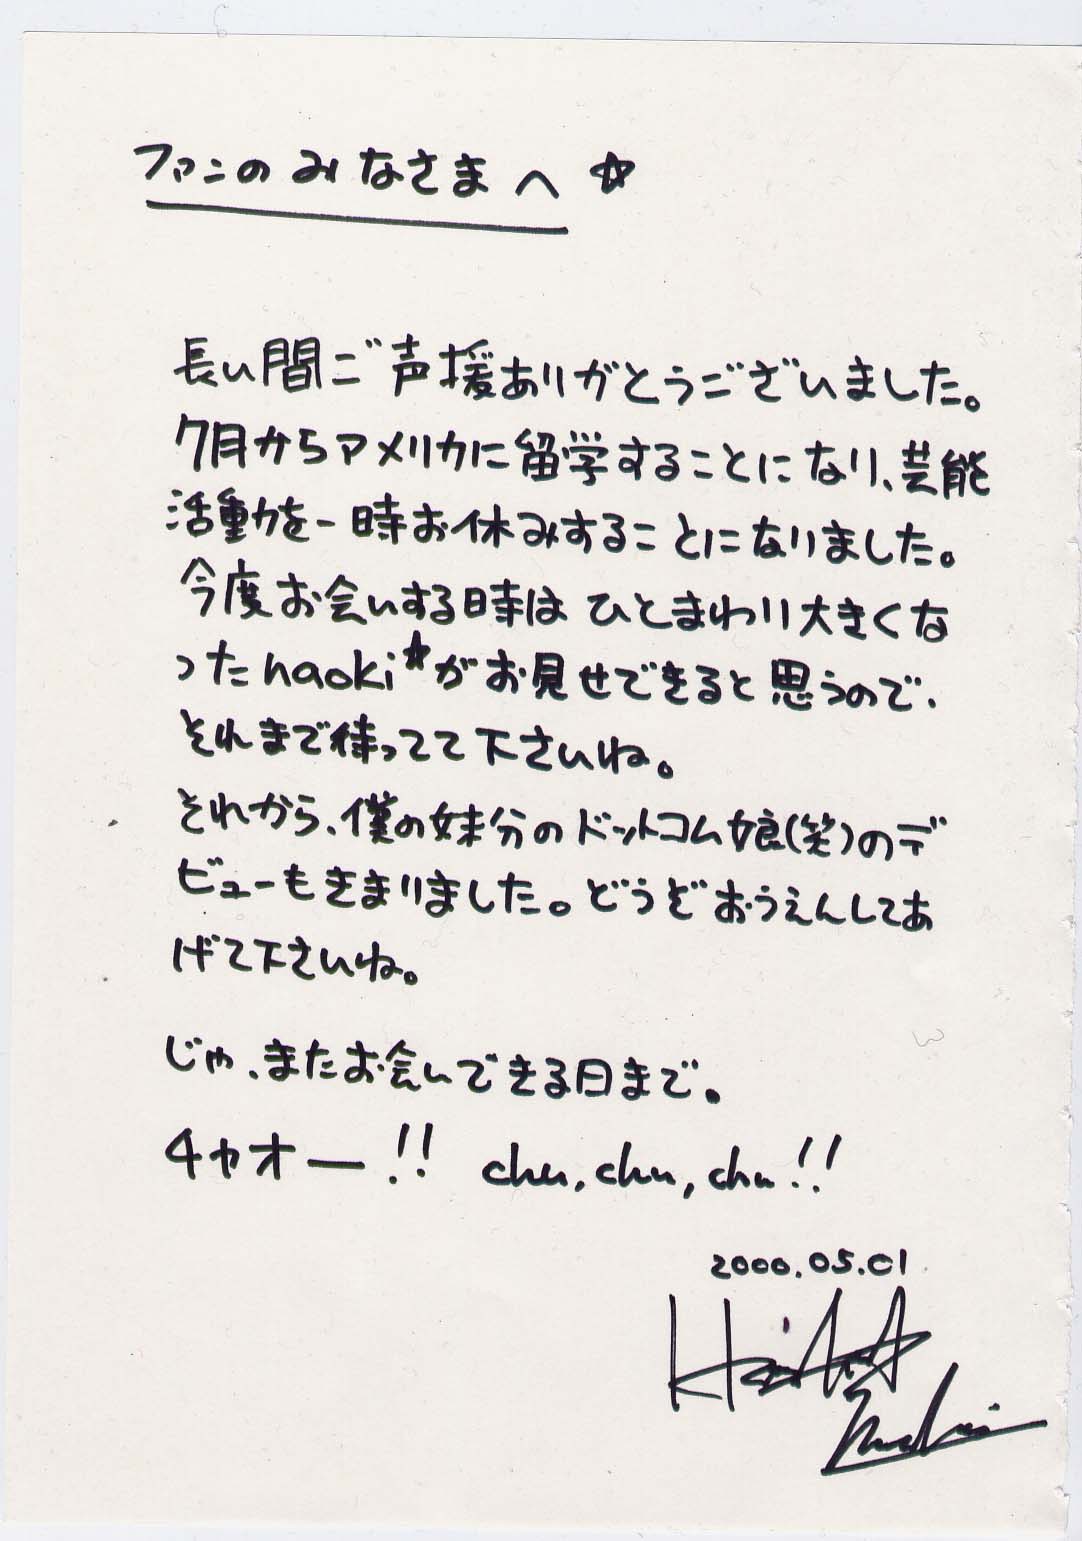 ファンのみなさまへ☆
長い間ご声援ありがとうございました。
7月からアメリカに留学することになり、芸能
活動を一時お休みすることになりました。
今度お会いする時はひとまわり大きくな
ったnaoki☆がお見せできると思うので、
それまで待ってて下さいね。
それから、僕の妹分のドットコム娘(笑)のデ
ビューもきまりました。どうぞおうえんしてあ
げて下さいね。
じゃ、またお会いできる日まで。
チャオー!! chu, chu, chu!!
2000.05.01